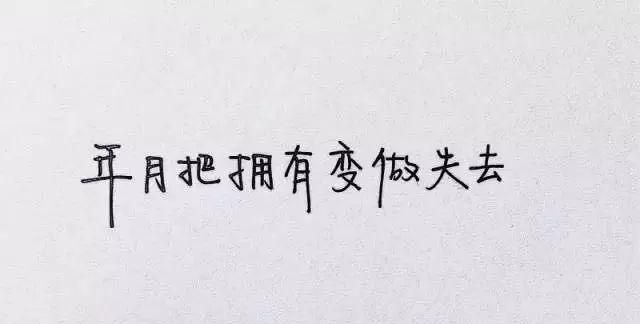 年月把拥有变做失去